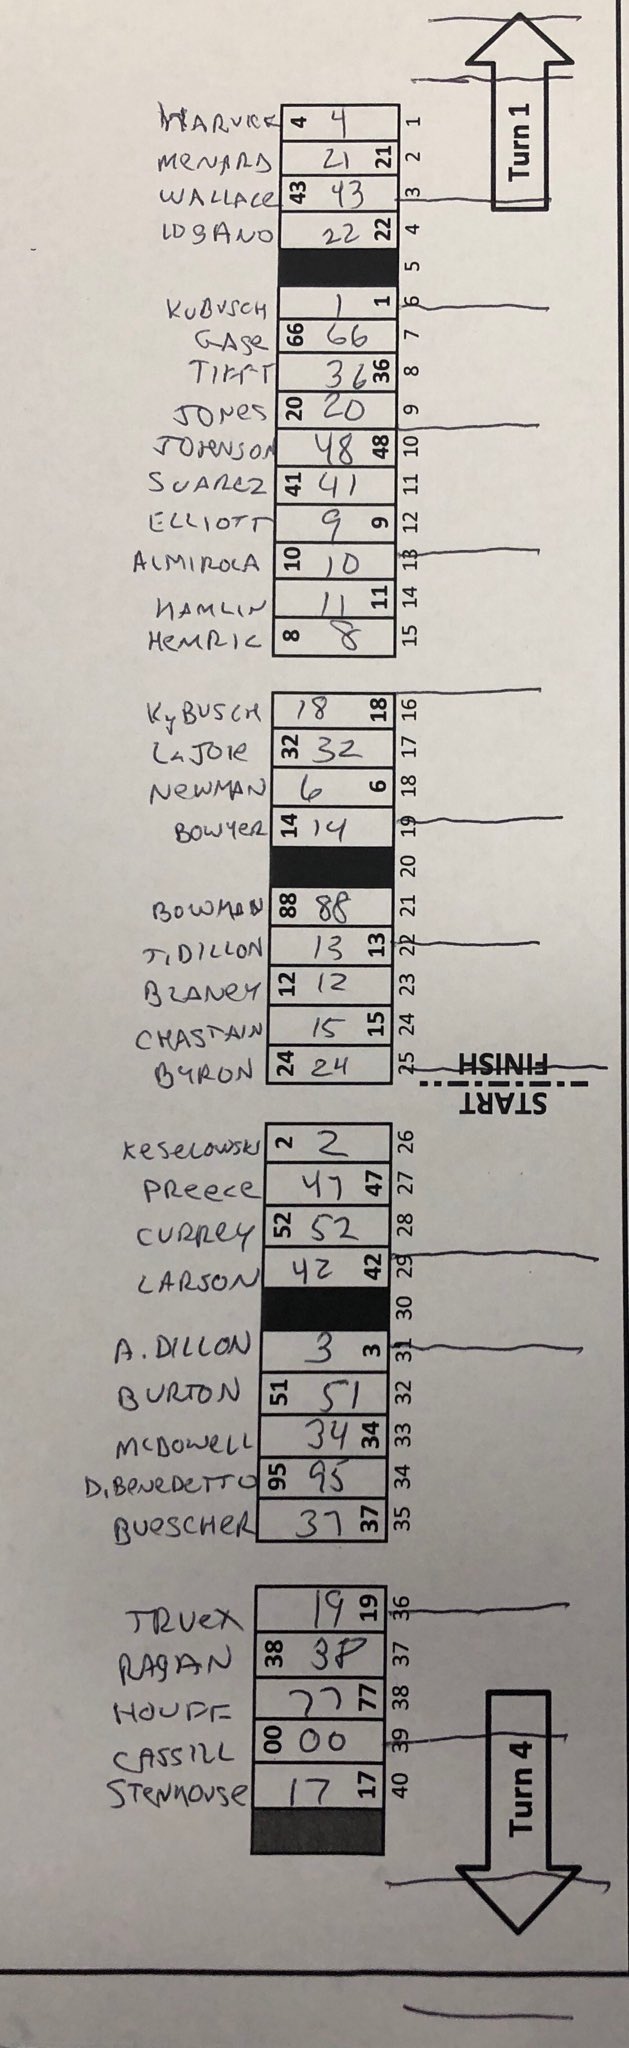 Turn 1
HARVICK 4 4 1
MENARD 21 21 2
WALLACE 43 43 3
LOGANO 22 22 4
5
KUBUSCH 1 1 6
GASE 66 66 7
TIFFT 36 36 8
JONES 20 20 9
JOHNSON 48 48 10
SUAREZ 41 41 11
ELLIOTT 9 9 12
ALMIROLA 10 10 13
HAMLIN 11 11 14
HEMRIC 8 8 15
KyBUSCH 18 18 16
LaJOIE 32 32 17
NEWMAN 6 6 18
BOWYER 14 14 19
20
BOWMAN 88 88 21
T, DILLON 13 13 22
BLANEY 12 12 23
CHASTAIN 15 15 24
BYRON 24 24 25
FINISH
START
KESELOWSKI 2 2 26
PREECE 47 47 27
CURREY 52 52 28
LARSON 42 42 29
30
A. DILLON 3 3 31
BURTON 51 51 32
McDOWELL 34 34 33
D, BENEDETTO 95 95 34
BUESCHER 37 37 35
TRUEX 19 19 36
RAGAN 38 38 37
HOUFF 77 77 38
CASSILL 00 00 39
STENHOUSE 17 17 40
Turn 4